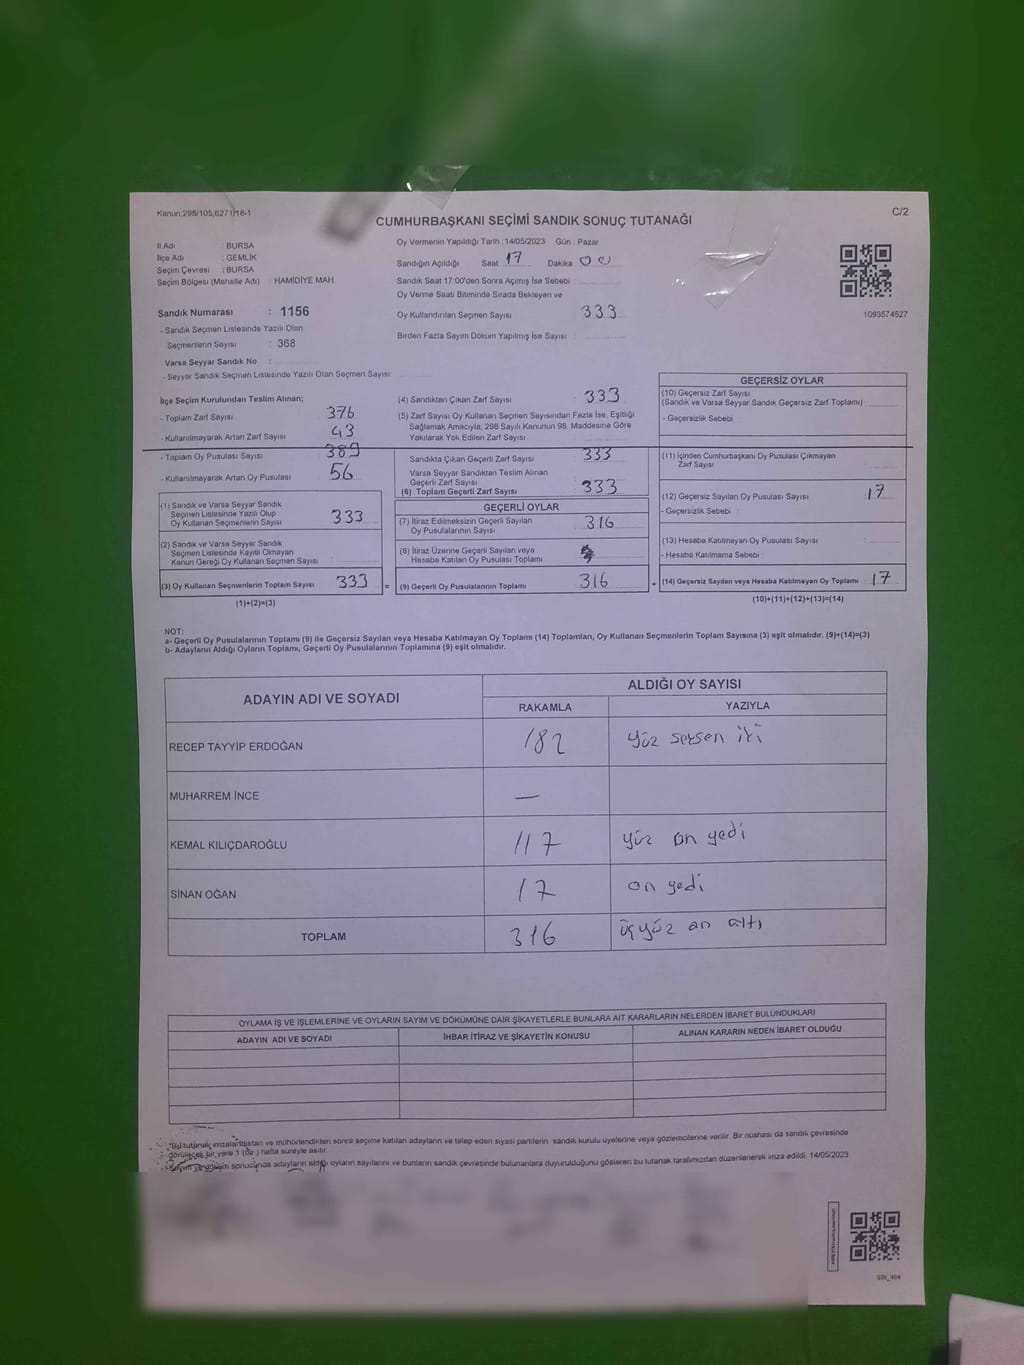 Kanun:298/105,6271/18-1
C/2
CUMHURBAŞKANI SEÇİMİ SANDIK SONUÇ TUTANAĞI
İli Adı : BURSA
İlçe Adı : GEMLİK
Seçim Çevresi : BURSA
Seçim Bölgesi (Mahalle Adı) : HAMİDİYE MAH
Oy Vermenin Yapıldığı Tarih :14/05/2023 Gün : Pazar
Sandığın Açıldığı Saat 17 Dakika 00
Sandık Saat 17:00'den Sonra Açılmış İse Sebebi :
Oy Verme Saati Bitiminde Sırada Bekleyen ve
Oy Kullandırılan Seçmen Sayısı : 333
Birden Fazla Sayım Döküm Yapılmış İse Sayısı :
1093574527
Sandık Numarası : 1156
- Sandık Seçmen Listesinde Yazılı Olan
Seçmenlerin Sayısı : 368
Varsa Seyyar Sandık No :
- Seyyar Sandık Seçmen Listesinde Yazılı Olan Seçmen Sayısı:
İlçe Seçim Kurulundan Teslim Alınan;
- Toplam Zarf Sayısı 376
- Kullanılmayarak Artan Zarf Sayısı 43
- Toplam Oy Pusulası Sayısı 389
- Kullanılmayarak Artan Oy Pusulası 56
(1) Sandık ve Varsa Seyyar Sandık
Seçmen Listesinde Yazılı Olup
Oy Kullanan Seçmenlerin Sayısı 333
(2) Sandık ve Varsa Seyyar Sandık
Seçmen Listesinde Kayıtlı Olmayan
Kanun Gereği Oy Kullanan Seçmen Sayısı
(3) Oy Kullanan Seçmenlerin Toplam Sayısı 333 =
(1)+(2)=(3)
(4) Sandıktan Çıkan Zarf Sayısı : 333
(5) Zarf Sayısı Oy Kullanan Seçmen Sayısından Fazla İse, Eşitliği
Sağlamak Amacıyla, 298 Sayılı Kanunun 98. Maddesine Göre
Yakılarak Yok Edilen Zarf Sayısı :
Sandıkta Çıkan Geçerli Zarf Sayısı : 333
Varsa Seyyar Sandıktan Teslim Alınan
Geçerli Zarf Sayısı :
(6) Toplam Geçerli Zarf Sayısı : 333
GEÇERLİ OYLAR
(7) İtiraz Edilmeksizin Geçerli Sayılan
Oy Pusulalarının Sayısı 316
(8) İtiraz Üzerine Geçerli Sayılan veya
Hesaba Katılan Oy Pusulası Toplamı
(9) Geçerli Oy Pusulalarının Toplamı 316 +
GEÇERSİZ OYLAR
(10) Geçersiz Zarf Sayısı
(Sandık ve Varsa Seyyar Sandık Geçersiz Zarf Toplamı) :
- Geçersizlik Sebebi :
(11) İçinden Cumhurbaşkanı Oy Pusulası Çıkmayan
Zarf Sayısı :
(12) Geçersiz Sayılan Oy Pusulası Sayısı : 17
- Geçersizlik Sebebi :
(13) Hesaba Katılmayan Oy Pusulası Sayısı :
- Hesaba Katılmama Sebebi :
(14) Geçersiz Sayılan veya Hesaba Katılmayan Oy Toplamı : 17
(10)+(11)+(12)+(13)=(14)
NOT:
a- Geçerli Oy Pusulalarının Toplamı (9) ile Geçersiz Sayılan veya Hesaba Katılmayan Oy Toplamı (14) Toplamları, Oy Kullanan Seçmenlerin Toplam Sayısına (3) eşit olmalıdır. (9)+(14)=(3)
b- Adayların Aldığı Oyların Toplamı, Geçerli Oy Pusulalarının Toplamına (9) eşit olmalıdır.
ADAYIN ADI VE SOYADI
ALDIĞI OY SAYISI
RAKAMLA YAZIYLA
RECEP TAYYİP ERDOĞAN 182 yüz seksen iki
MUHARREM İNCE —
KEMAL KILIÇDAROĞLU 117 yüz on yedi
SİNAN OĞAN 17 on yedi
TOPLAM 316 üç yüz on altı
OYLAMA İŞ VE İŞLEMLERİNE VE OYLARIN SAYIM VE DÖKÜMÜNE DAİR ŞİKAYETLERLE BUNLARA AİT KARARLARIN NELERDEN İBARET BULUNDUKLARI
ADAYIN ADI VE SOYADI İHBAR İTİRAZ VE ŞİKAYETİN KONUSU ALINAN KARARIN NEDEN İBARET OLDUĞU
Bu tutanak imzalandıktan ve mühürlendikten sonra seçime katılan adayların ve talep eden siyasi partilerin sandık kurulu üyelerine veya gözlemcilerine verilir. Bir nüshası da sandık çevresinde
görülecek bir yere 1 (bir) hafta süreyle asılır.
Seçim sonucunda adayların aldığı oyların sayılarını ve bunların sandık çevresinde bulunanlara duyurulduğunu gösteren bu tutanak tarafımızdan düzenlenerek imza edildi. 14/05/2023